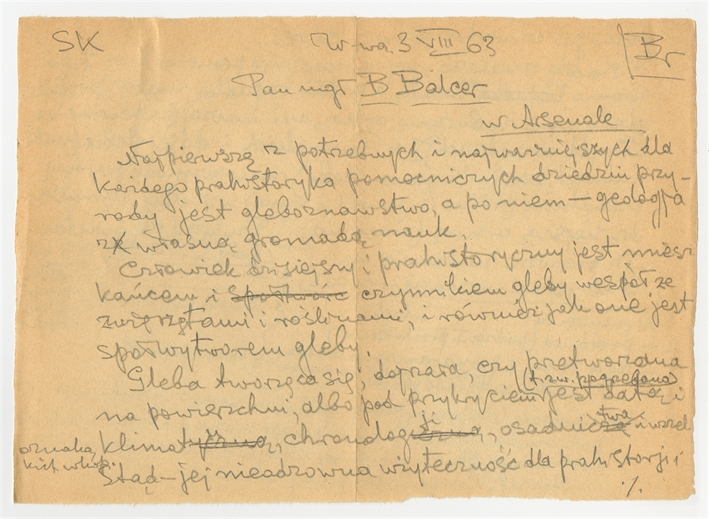 SK W-wa 3 VIII 63 Br
Pan mgr B Balcer
w Arsenale
Najpierwszą z potrzebnych i najważniejszych dla
każdego prahistoryka pomocniczych dziedzin przy-
rody jest gleboznawstwo, a po niem – geologia
z własną gromadą nauk.
Człowiek dzisiejszy i prahistoryczny jest miesz
kańcem i czynnikiem gleby wespół ze
zwięrzętami i roślinami, i również jak one jest
społwytworem gleby.
Gleba tworząca się, doprara, czy prętworzona
(t.zw. pogrzebana)
na powierzchni, albo pod przykryciem jest datą i
oznaką klimatu, chronologji, osadnictwa i wszel
kich
Stąd – jej nieodzowna użyteczność dla prahistorji i
./.